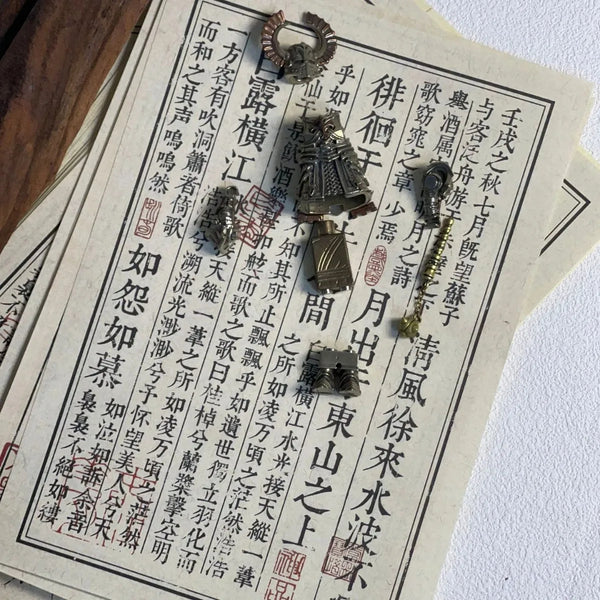 壬戌之秋七月既望蘇子
与客泛舟游于壁之
清風徐來水波不
舉酒属月之詩
歌窈窕之章少焉
徘徊于
月出東山之上
間
乎如
白露橫江水光接天縱一葦
仙于飲酒
之所如凌万頃之茫然浩浩
不知其所止飄飄乎如遺世獨立羽化而
白露橫江水
扣舷而歌之歌曰桂棹兮蘭槳擊空明
兮溯流光渺渺兮予怀望美人兮天
天縱一葦之所如凌万頃之茫然
一方客有吹洞簫者倚歌
而和之其声嗚嗚然
如怨如慕
如泣如訴余音
裊裊不絕如縷